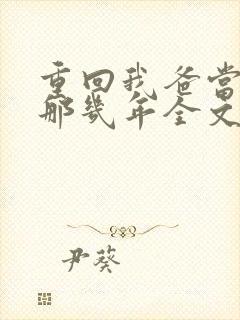 重回我爸当
那几年全文
尹葵